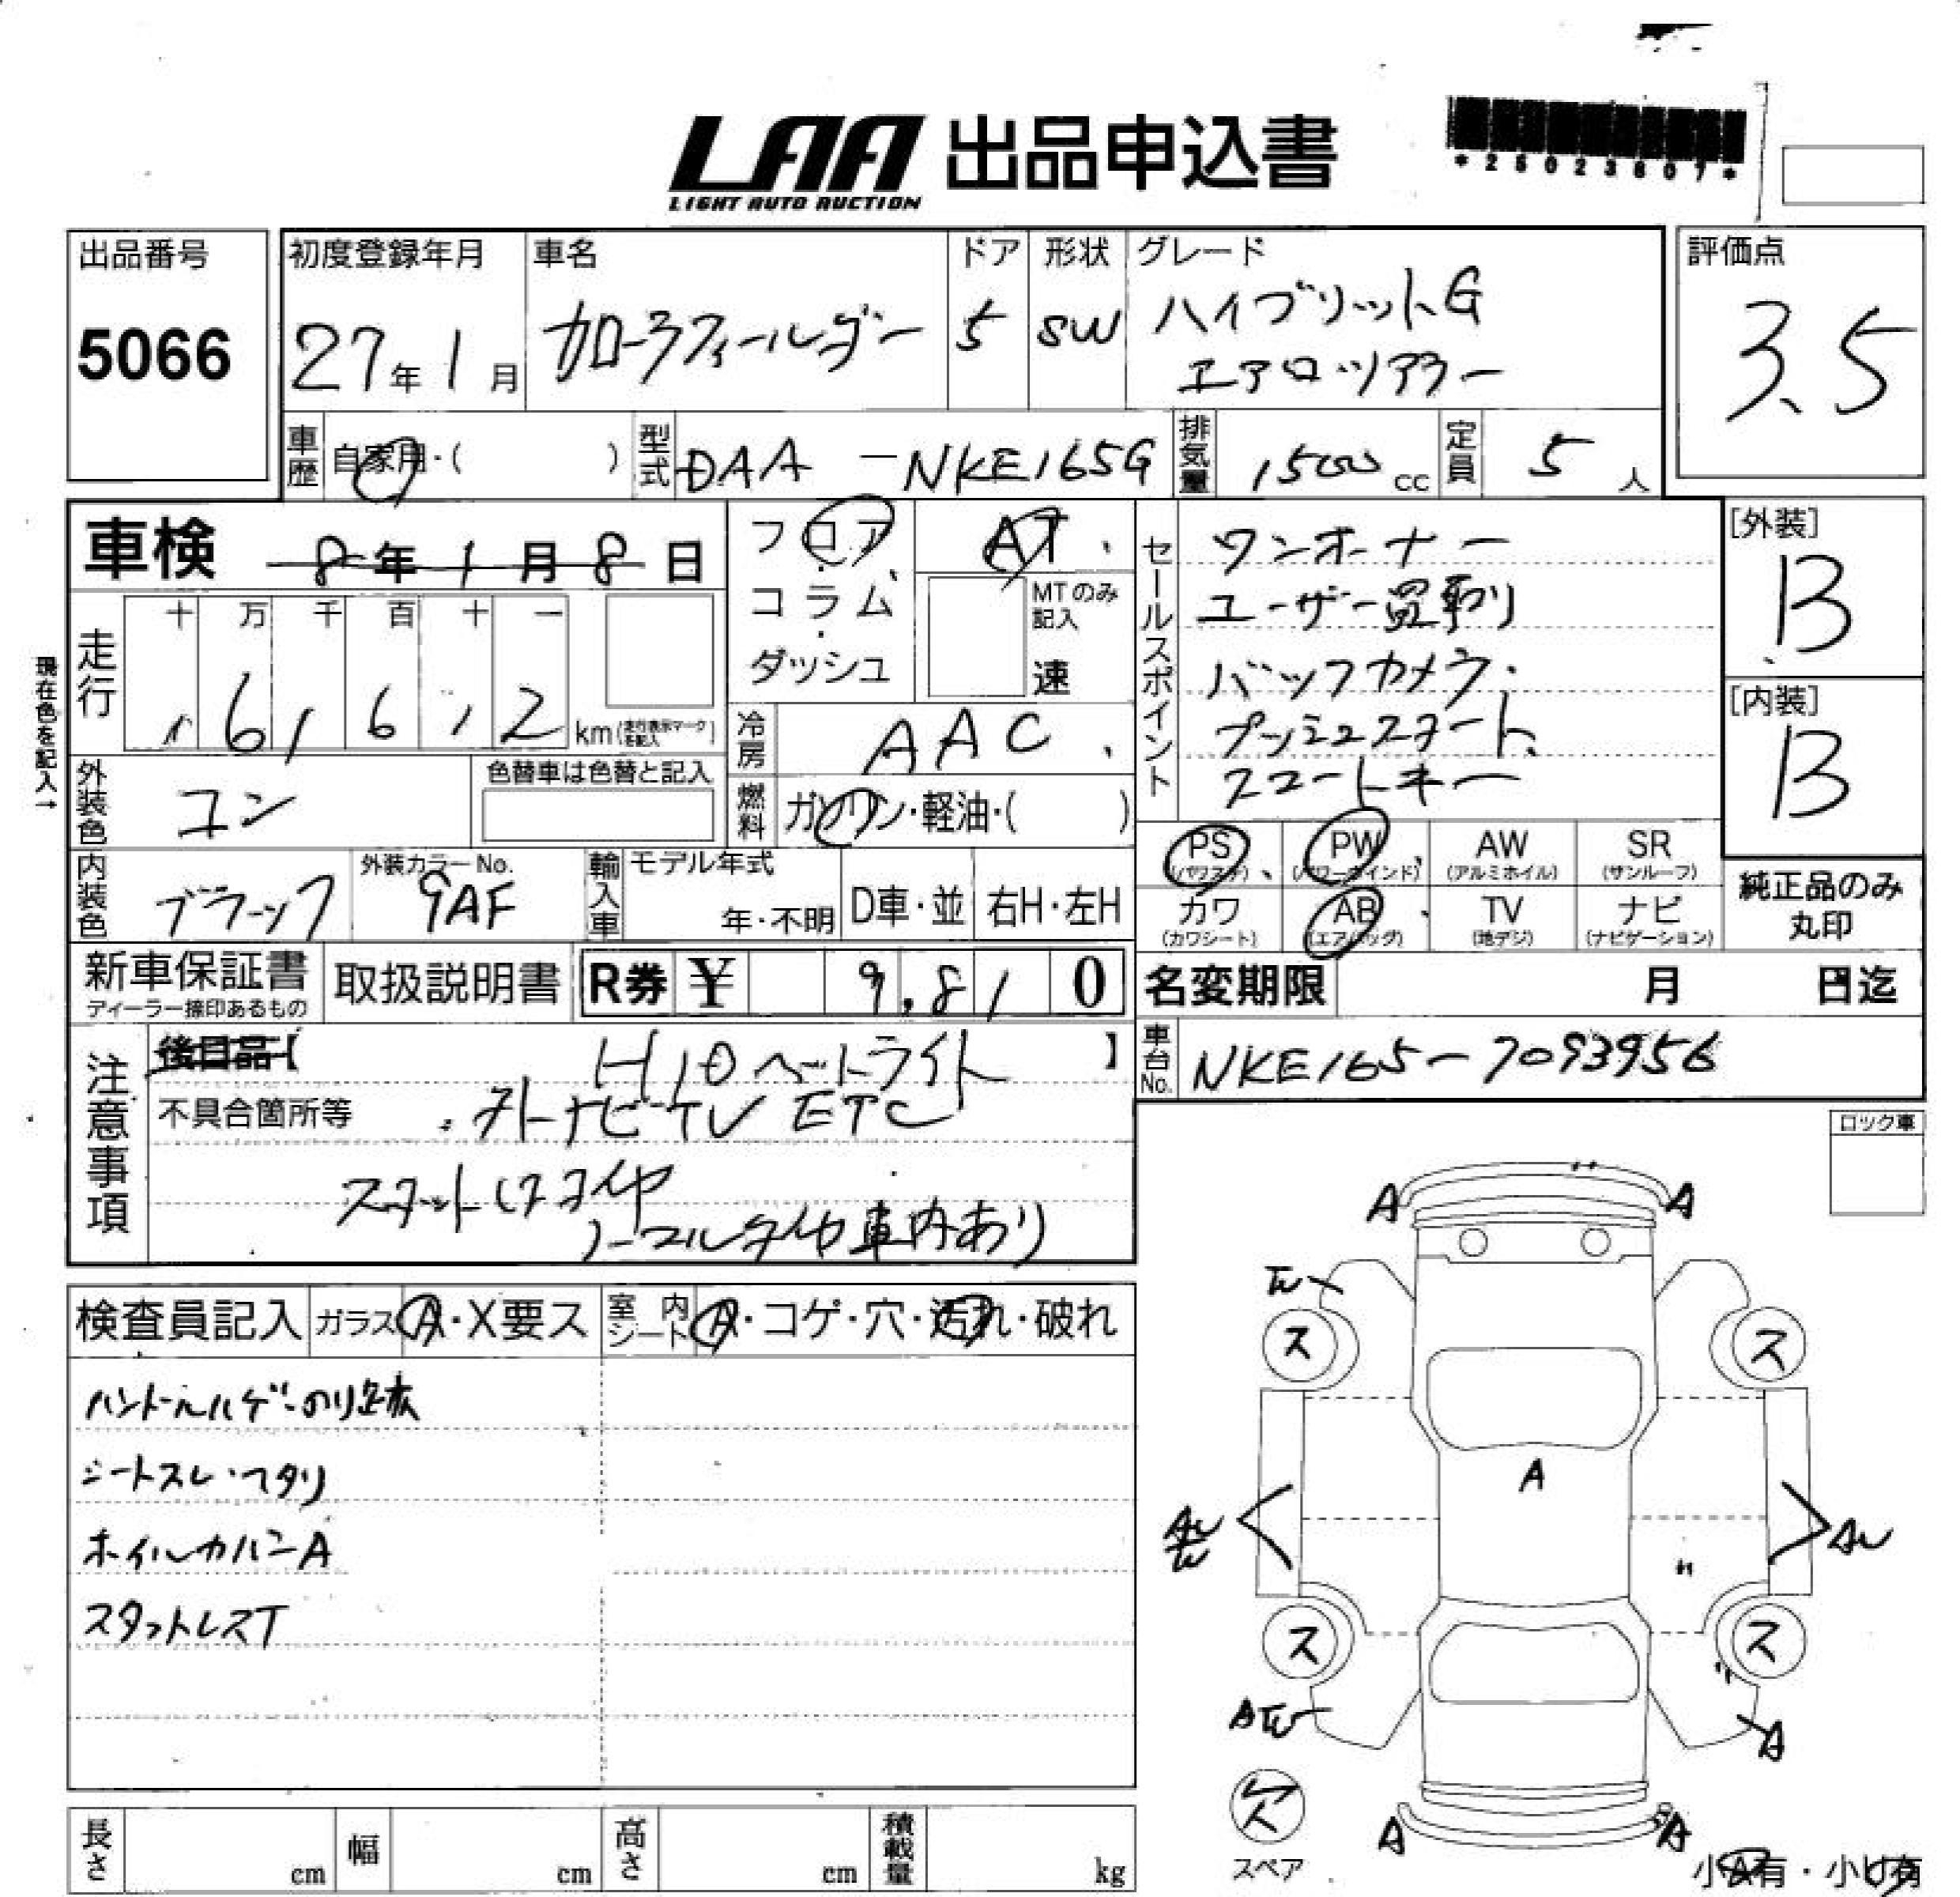 LAA 出品申込書
LIGHT AUTO AUCTION
*25023607*
出品番号
5066
初度登録年月
27年1月
車名
カローラフィールダー
ドア
5
形状
SW
グレード
ハイブリットG
エアロツアラー
評価点
3.5
車歴
自家用・( )
型式
DAA-NKE165G
排気量
1500cc
定員
5人
車検 8年1月8日
フロア・
コラム・
ダッシュ
AT
MTのみ記入
速
セールスポイント
ワンオーナー
ユーザー買取り
バックカメラ
プッシュスタート
スマートキー
[外装]
B
[内装]
B
現在色を記入→
走行
十 万 千 百 十 一
km(走行表示マークを記入)
冷房
AAC
外装色
コン
色替車は色替と記入
燃料
ガソリン・軽油・( )
PS
(パワステ)
PW
(パワーウインド)
AW
(アルミホイル)
SR
(サンルーフ)
カワ
(カワシート)
AB
(エアバッグ)
TV
(地デジ)
ナビ
(ナビゲーション)
純正品のみ
丸印
内装色
ブラック
外装カラーNo.
9AF
輸入車
モデル年式
年・不明
D車・並
右H・左H
新車保証書
ディーラー捺印あるもの
取扱説明書
R券 ¥ 9,810
名変期限 月 日迄
車台No.
NKE165-7093956
注意事項
後日品【 】
HIDヘットライト
不具合箇所等
ナビTV ETC
ノーマルタイヤ車内あり
ロック車
検査員記入
ガラス A・X要ス
室内シート A・コゲ・穴・汚れ・破れ
ハンドルハゲ
シートスレ・ヘタリ
ホイルカバーA
スタットレスT
A A
ス ス
A
ス ス
A
A A
欠
スペア
小A有・小U有
長さ cm
幅 cm
高さ cm
積載量 kg